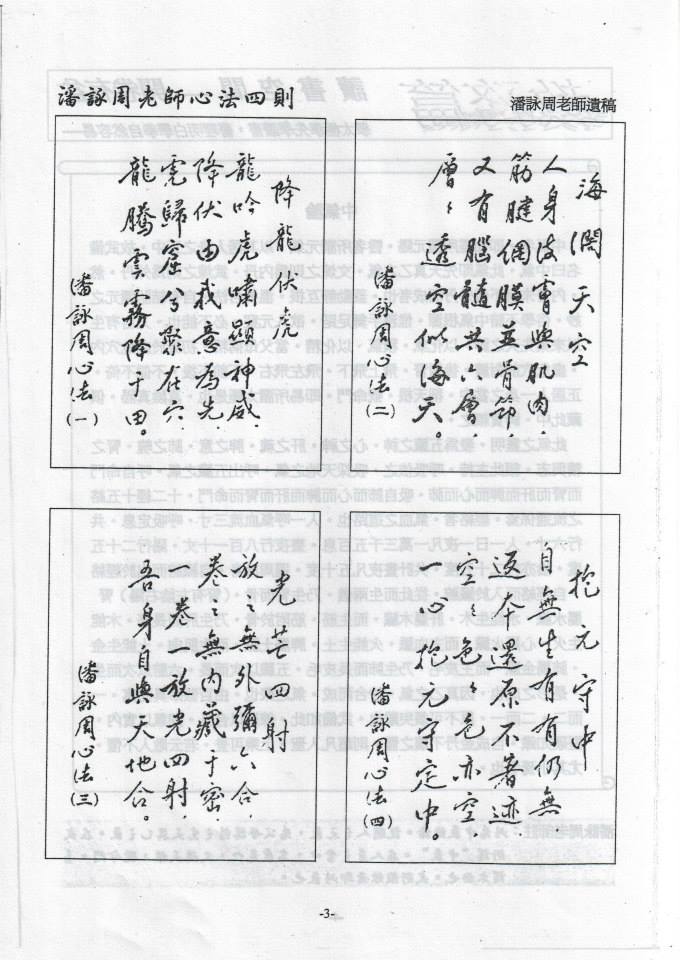 潘詠周老師心法四則
潘詠周老師遺稿
降龍伏虎
龍吟虎嘯顯神威.
降伏由我意為先
虎歸窟兮聚在穴.
龍騰雲霧降于田。
潘詠周心法(一)
海濶天空
人身皮膚與肌肉.
筋腱網膜並骨節.
又有腦髓共六層.
層〻透空似海天。
潘詠周心法(二)
光芒四射
放之無外彌六合,
卷之無內藏于密,
一卷一放光四射,
吾身自與天地合。
潘詠周心法(三)
抱元守中
自無生有有仍無
返本還原不著迹
空〻色〻色亦空.
一心抱元守定中。
潘詠周心法(四)
-3-